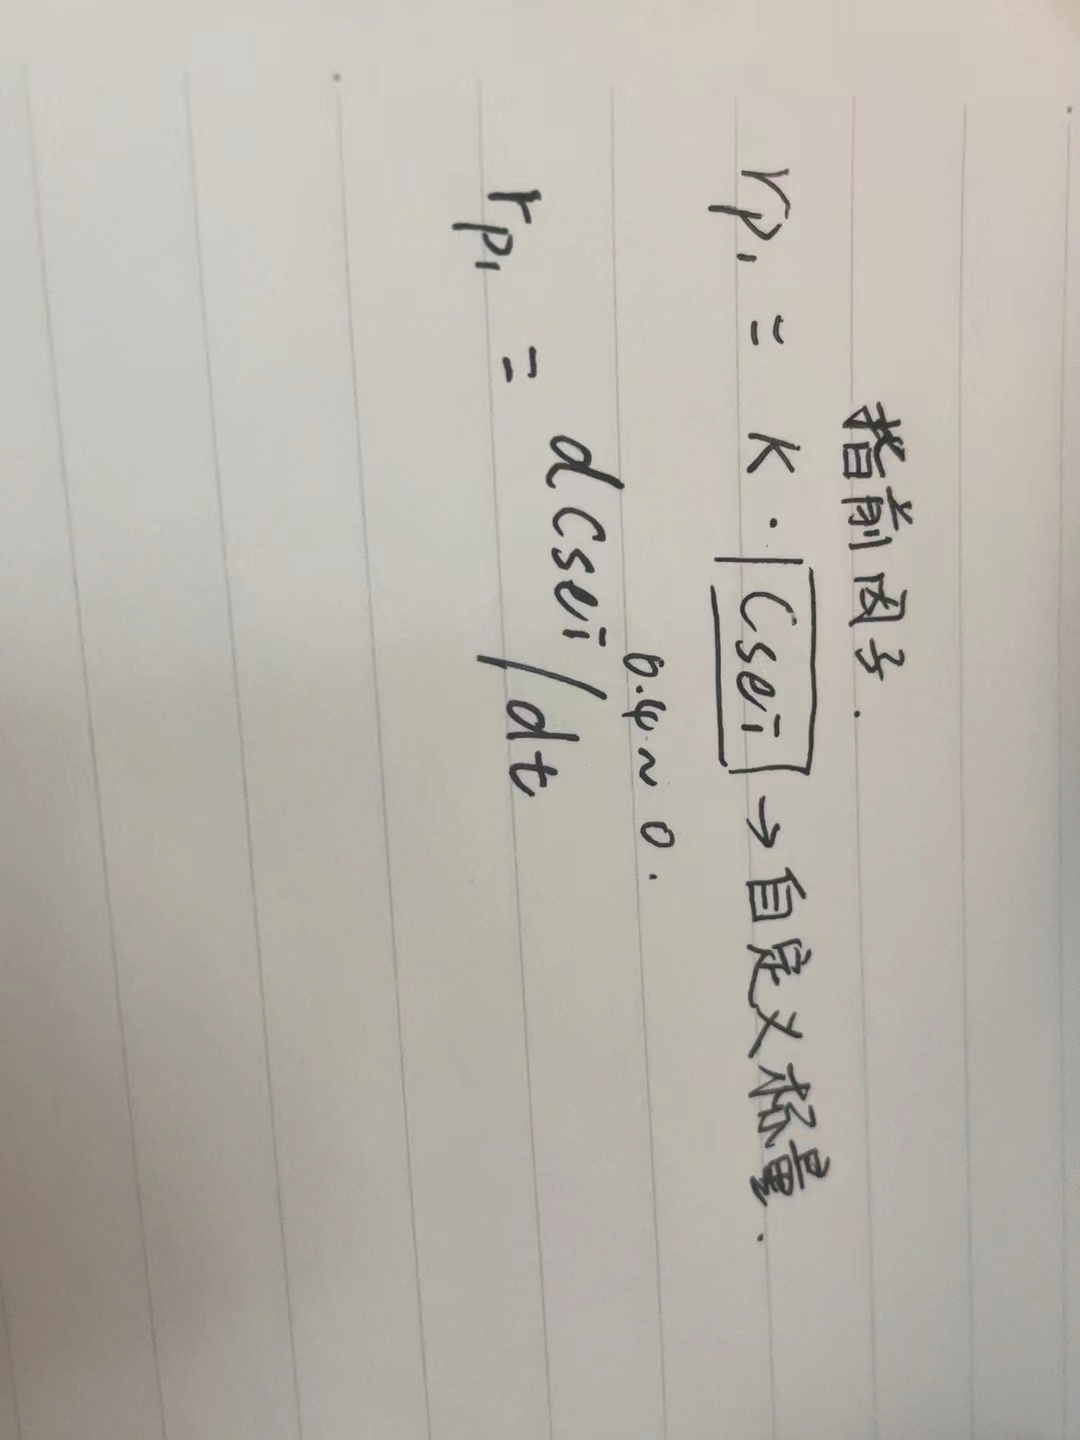 指前因子.
rp1 = K · Csei → 自定义标量.
0.4 ~ 0.
rp1 = dCsei/dt